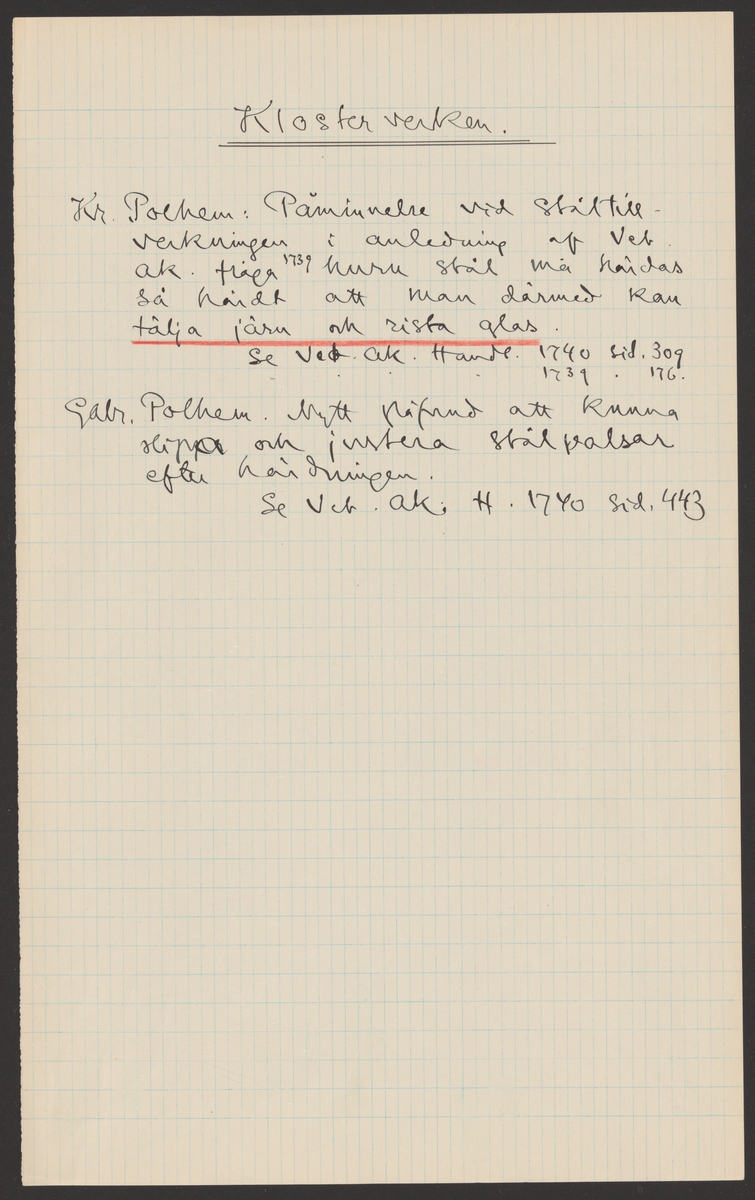 Klosterverken.
Kr. Polhem: Påminnelse vid ståltill-
verkningen i anledning af Vet.
ak. fråga 1739 huru stål må härdas
så hårdt att man därmed kan
tälja järn och rista glas.
Se Vet. Ak. Handl. 1740 sid. 309
1739 . 176.
Gabr. Polhem. Nytt påfund att kunna
slippa och justera stålvalsar
efter härdningen.
Se Vet. Ak. H. 1740 sid. 443